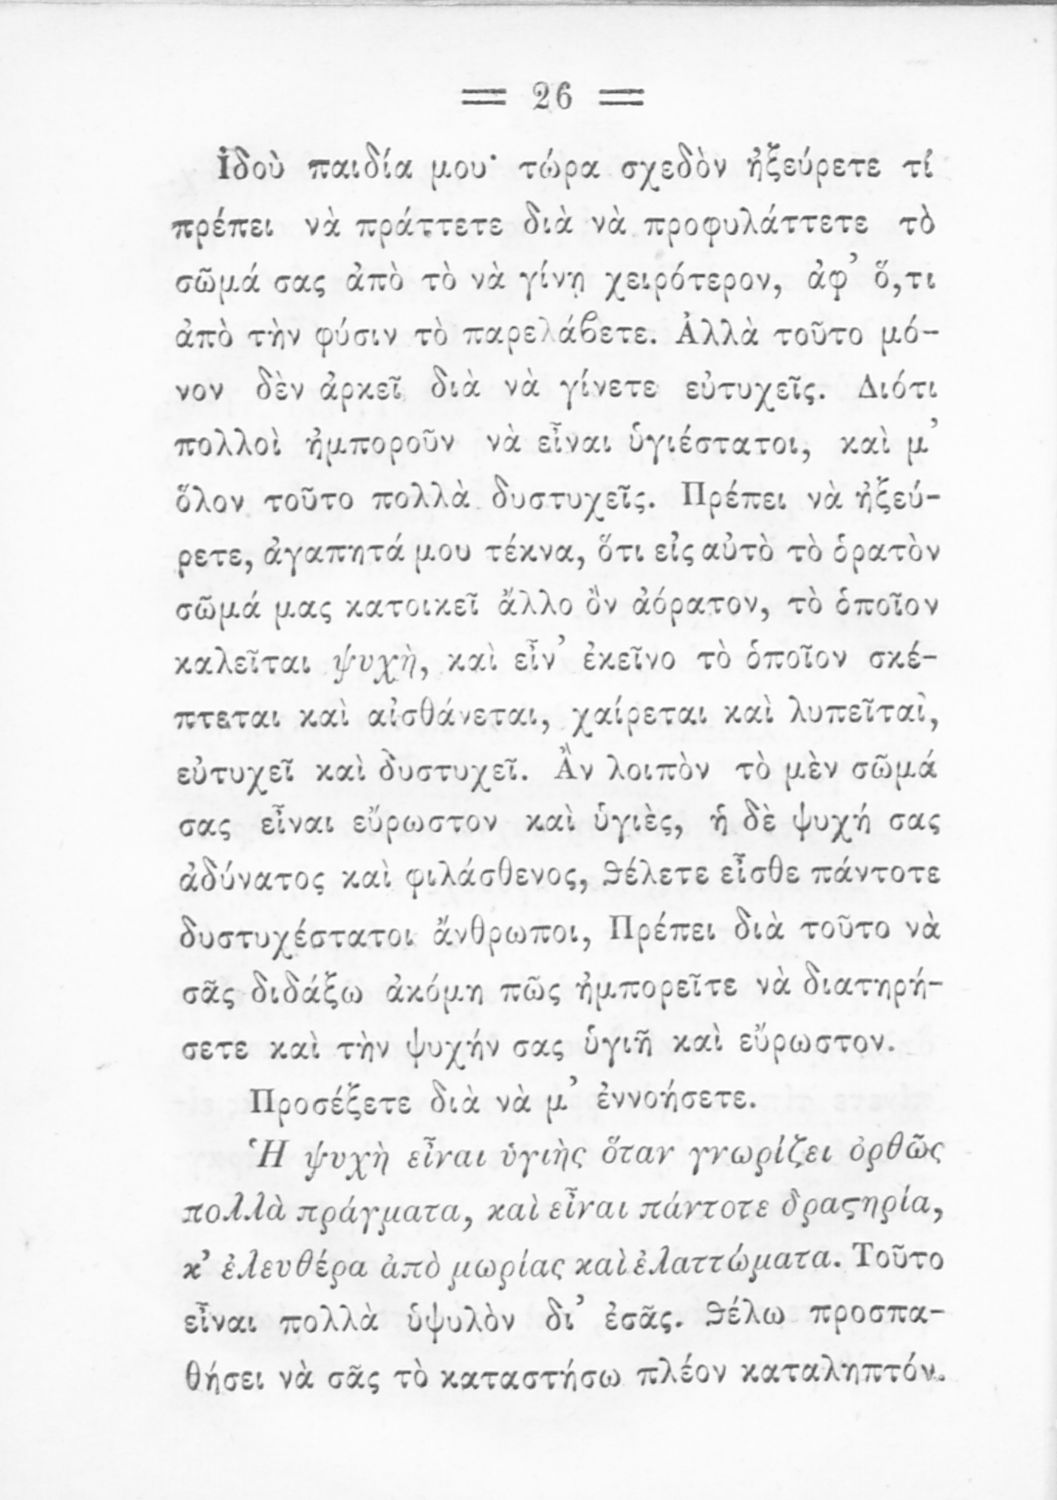 == 26 ==
Ἰδοὺ παιδία μου· τώρα σχεδὸν ἠξεύρετε τί
πρέπει νὰ πράττετε διὰ νὰ προφυλάττετε τὸ
σῶμά σας ἀπὸ τὸ νὰ γίνῃ χειρότερον, ἀφ' ὅ,τι
ἀπὸ τὴν φύσιν τὸ παρελάβετε. Ἀλλὰ τοῦτο μό-
νον δὲν ἀρκεῖ διὰ νὰ γίνετε εὐτυχεῖς. Διότι
πολλοὶ ἠμποροῦν νὰ εἶναι ὑγιέστατοι, καὶ μ'
ὅλον τοῦτο πολλὰ δυστυχεῖς. Πρέπει νὰ ἠξεύ-
ρετε, ἀγαπητά μου τέκνα, ὅτι εἰς αὐτὸ τὸ ὁρατὸν
σῶμά μας κατοικεῖ ἄλλο ὂν ἀόρατον, τὸ ὁποῖον
καλεῖται ψυχὴ, καὶ εἶν' ἐκεῖνο τὸ ὁποῖον σκέ-
πτεται καὶ αἰσθάνεται, χαίρεται καὶ λυπεῖται,
εὐτυχεῖ καὶ δυστυχεῖ. Ἂν λοιπὸν τὸ μὲν σῶμά
σας εἶναι εὔρωστον καὶ ὑγιὲς, ἡ δὲ ψυχή σας
ἀδύνατος καὶ φιλάσθενος, ϑέλετε εἶσθε πάντοτε
δυστυχέστατοι ἄνθρωποι, Πρέπει διὰ τοῦτο νὰ
σᾶς διδάξω ἀκόμη πῶς ἠμπορεῖτε νὰ διατηρή-
σετε καὶ τὴν ψυχήν σας ὑγιῆ καὶ εὔρωστον.
Προσέξετε διὰ νὰ μ' ἐννοήσετε.
Ἡ ψυχὴ εἶναι ὑγιὴς ὅταν γνωρίζει ὀρθῶς
πολλὰ πράγματα, καὶ εἶναι πάντοτε δραϛηρία,
κ' ἐλευθέρα ἀπὸ μωρίας καὶ ἐλαττώματα. Τοῦτο
εἶναι πολλὰ ὑψυλὸν δι' ἐσᾶς. ϑέλω προσπα-
θήσει νὰ σᾶς τὸ καταστήσω πλέον καταληπτόν.